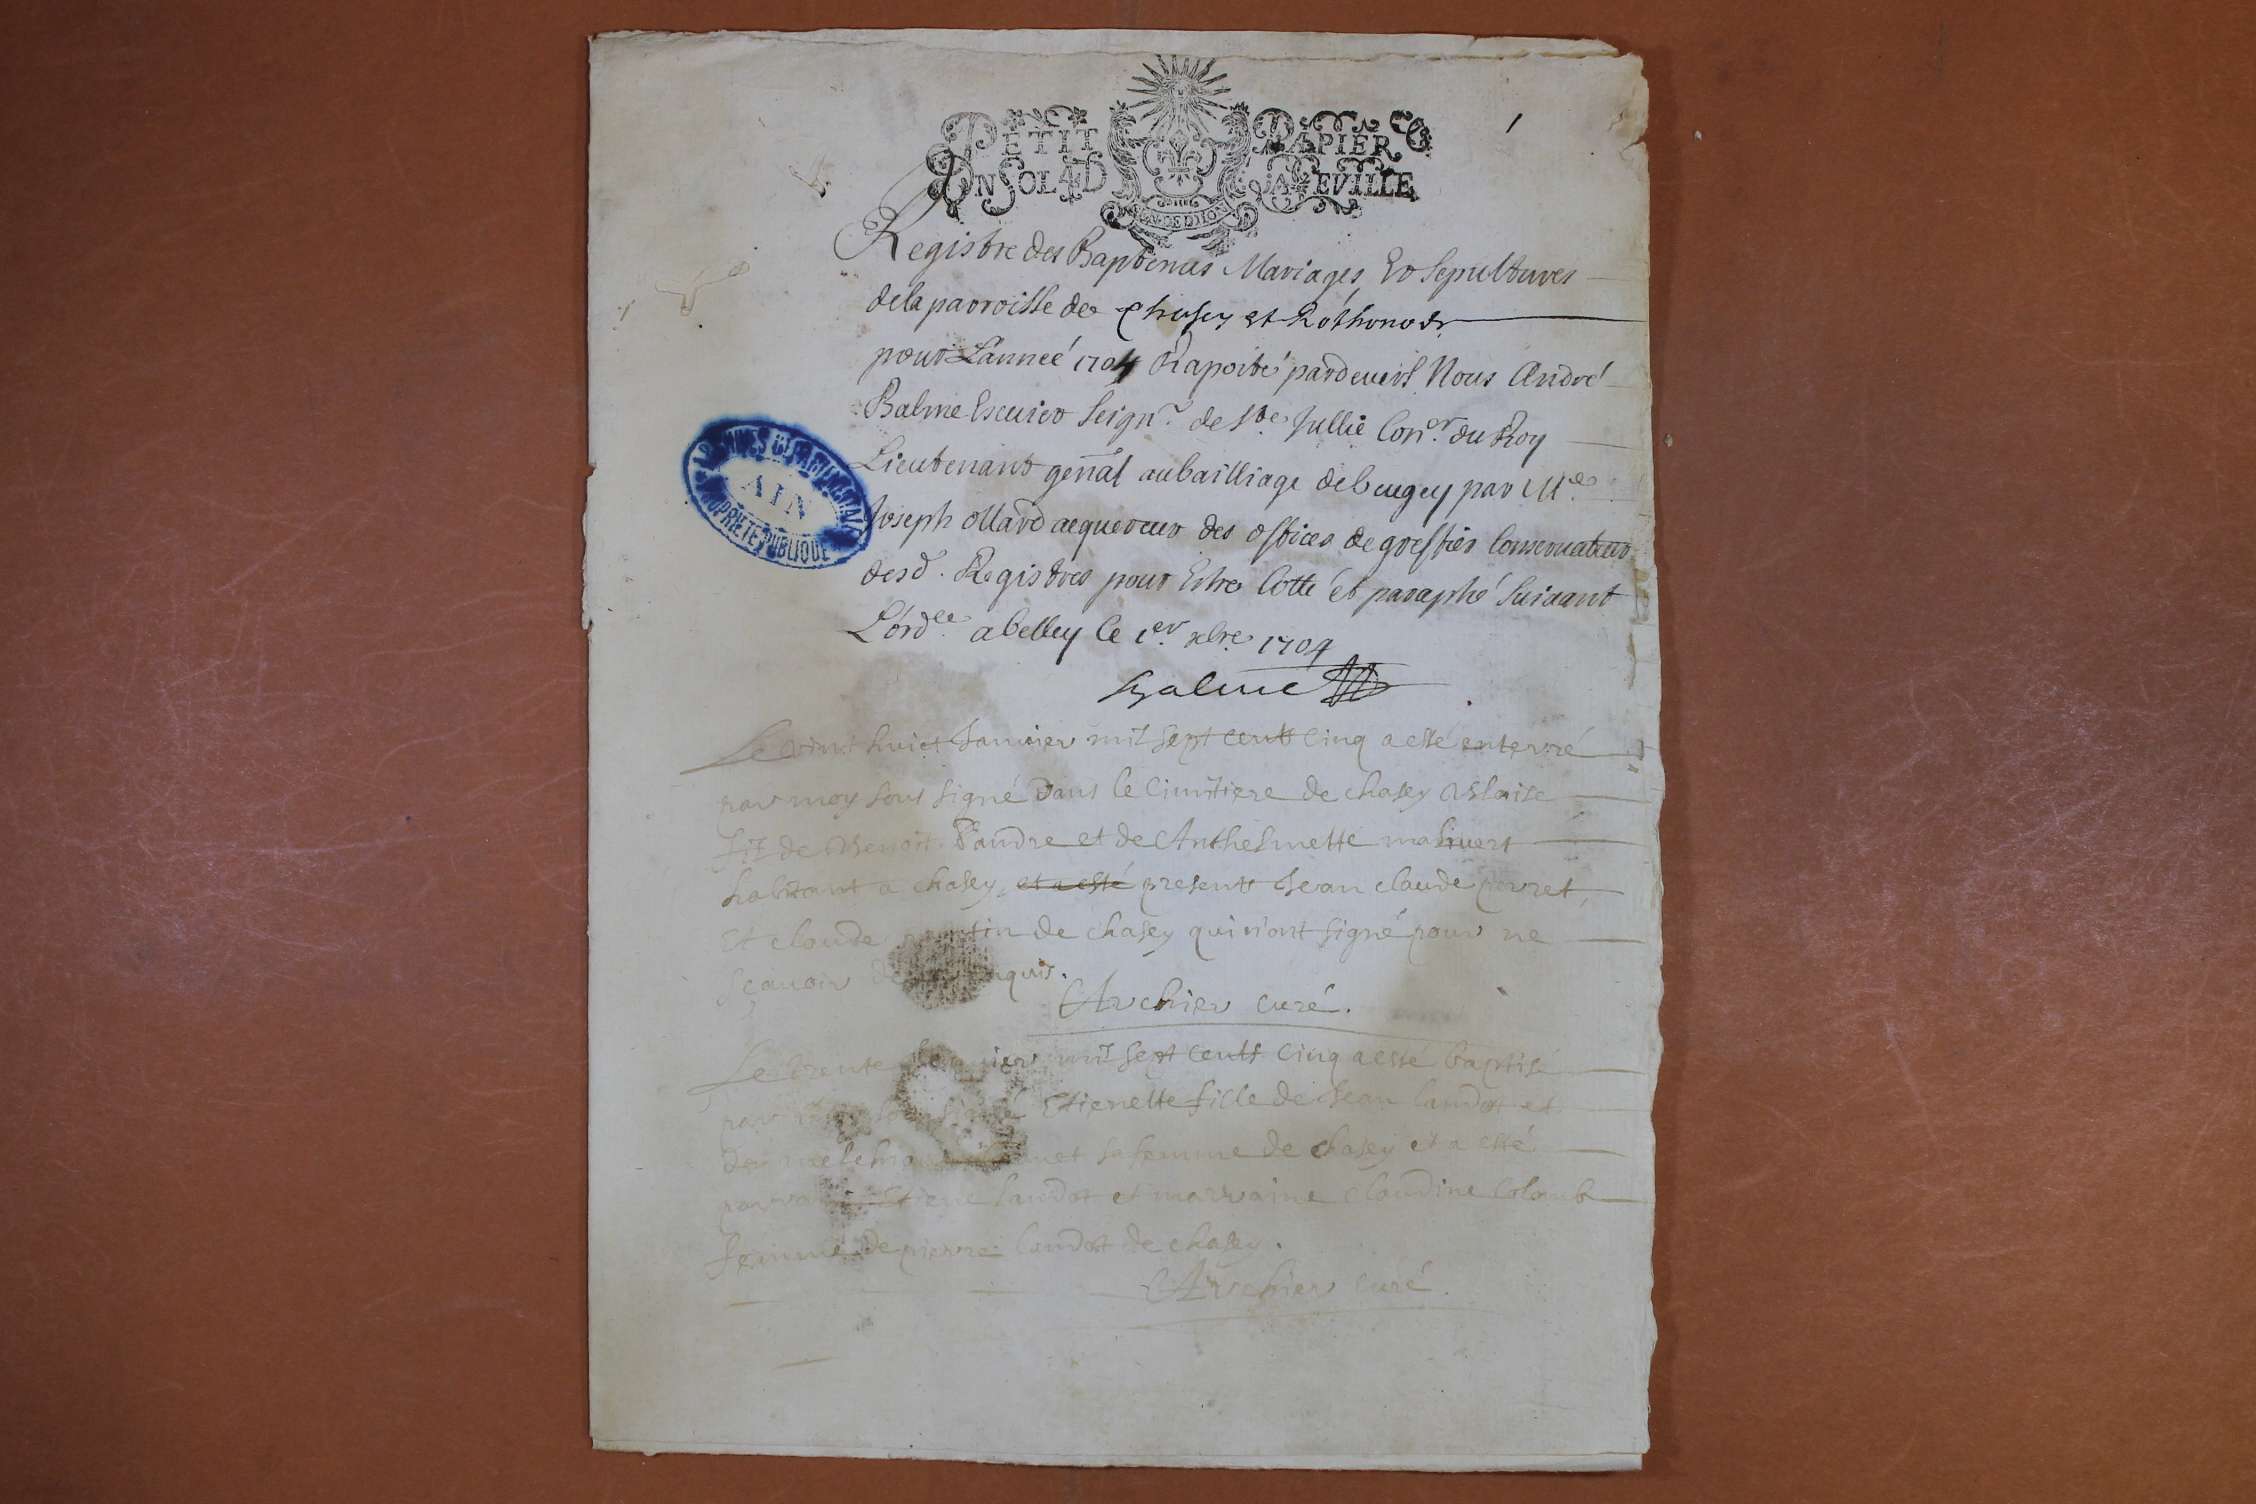 PETIT PAPIER
UN SOL 4 D LA FEVILLE
GEN. DE DIION
1
Registre des Baptemes Mariages, Et Sepultures
de la parroisse de Chasey et Rothonod
pour L'anneé 1704 Raporté pardevers Nous André
Balme Escuier Seignr. de Ste Jullie Coner. du Roy
Lieutenant gen̄al au bailliage de beugey par Me.
Joseph ollard acquereur des offices de greffier Conservateur
desd. Registres pour Estre Cotté et paraphé Suivant
L'ordce. a belley le 1er. xbre 1704
Balme
ARCHIVES DEPARTEMENTALES
AIN
PROPRIETE PUBLIQUE
Le vint huict Janvier mil sept cents cinq a esté enterré
par moy sous signé dans le Cimitiere de chasey Blaise
fils de Benoit Tandre et de Anthelmette malivert
habitant a chasey, et a esté presents Jean claude perret,
et claude de chasey qui n'ont signé pour ne
sçavoir de enquis.
Archier curé.
Le trente Janvier mil sept cents cinq a esté baptisé
par moy sous signé Etienette fille de Jean Landot et
de sa femme de chasey et a esté
parrain Etiene Landot et marraine Claudine Colomb
femme de pierre Landot de chasey.
Archier curé.